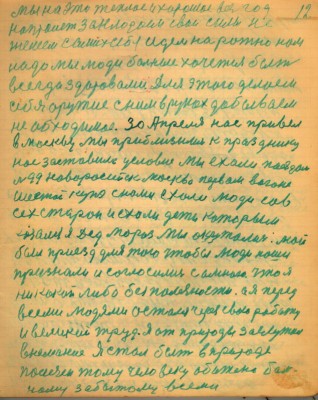 12
мы на это теплое и хорошее в год
надо мы люди больше хочется быть
всегда здоровыми для этого делаем
себя оружие с ним в руках добываем
не обходимое. 30 Апреля нас привел
в москву, мы приблизились к празднику
нас заставило условие мы ехали поездом
новоросийск москва первом вагоне
шестой купэ снами ехали люди сов
сех сторон и ехали дети которым
я дед мороз мы окутали. мой
был приезд для того чтобы люди наши
признали и согласились самною этоя
никакой либо бесполезность. а я перед
всеми людями остался через свою работу
и великий труд. Я от природы заслужил
внимание Я стал быть в природе
посилен тому человеку обижено боль
ному забытому всеми